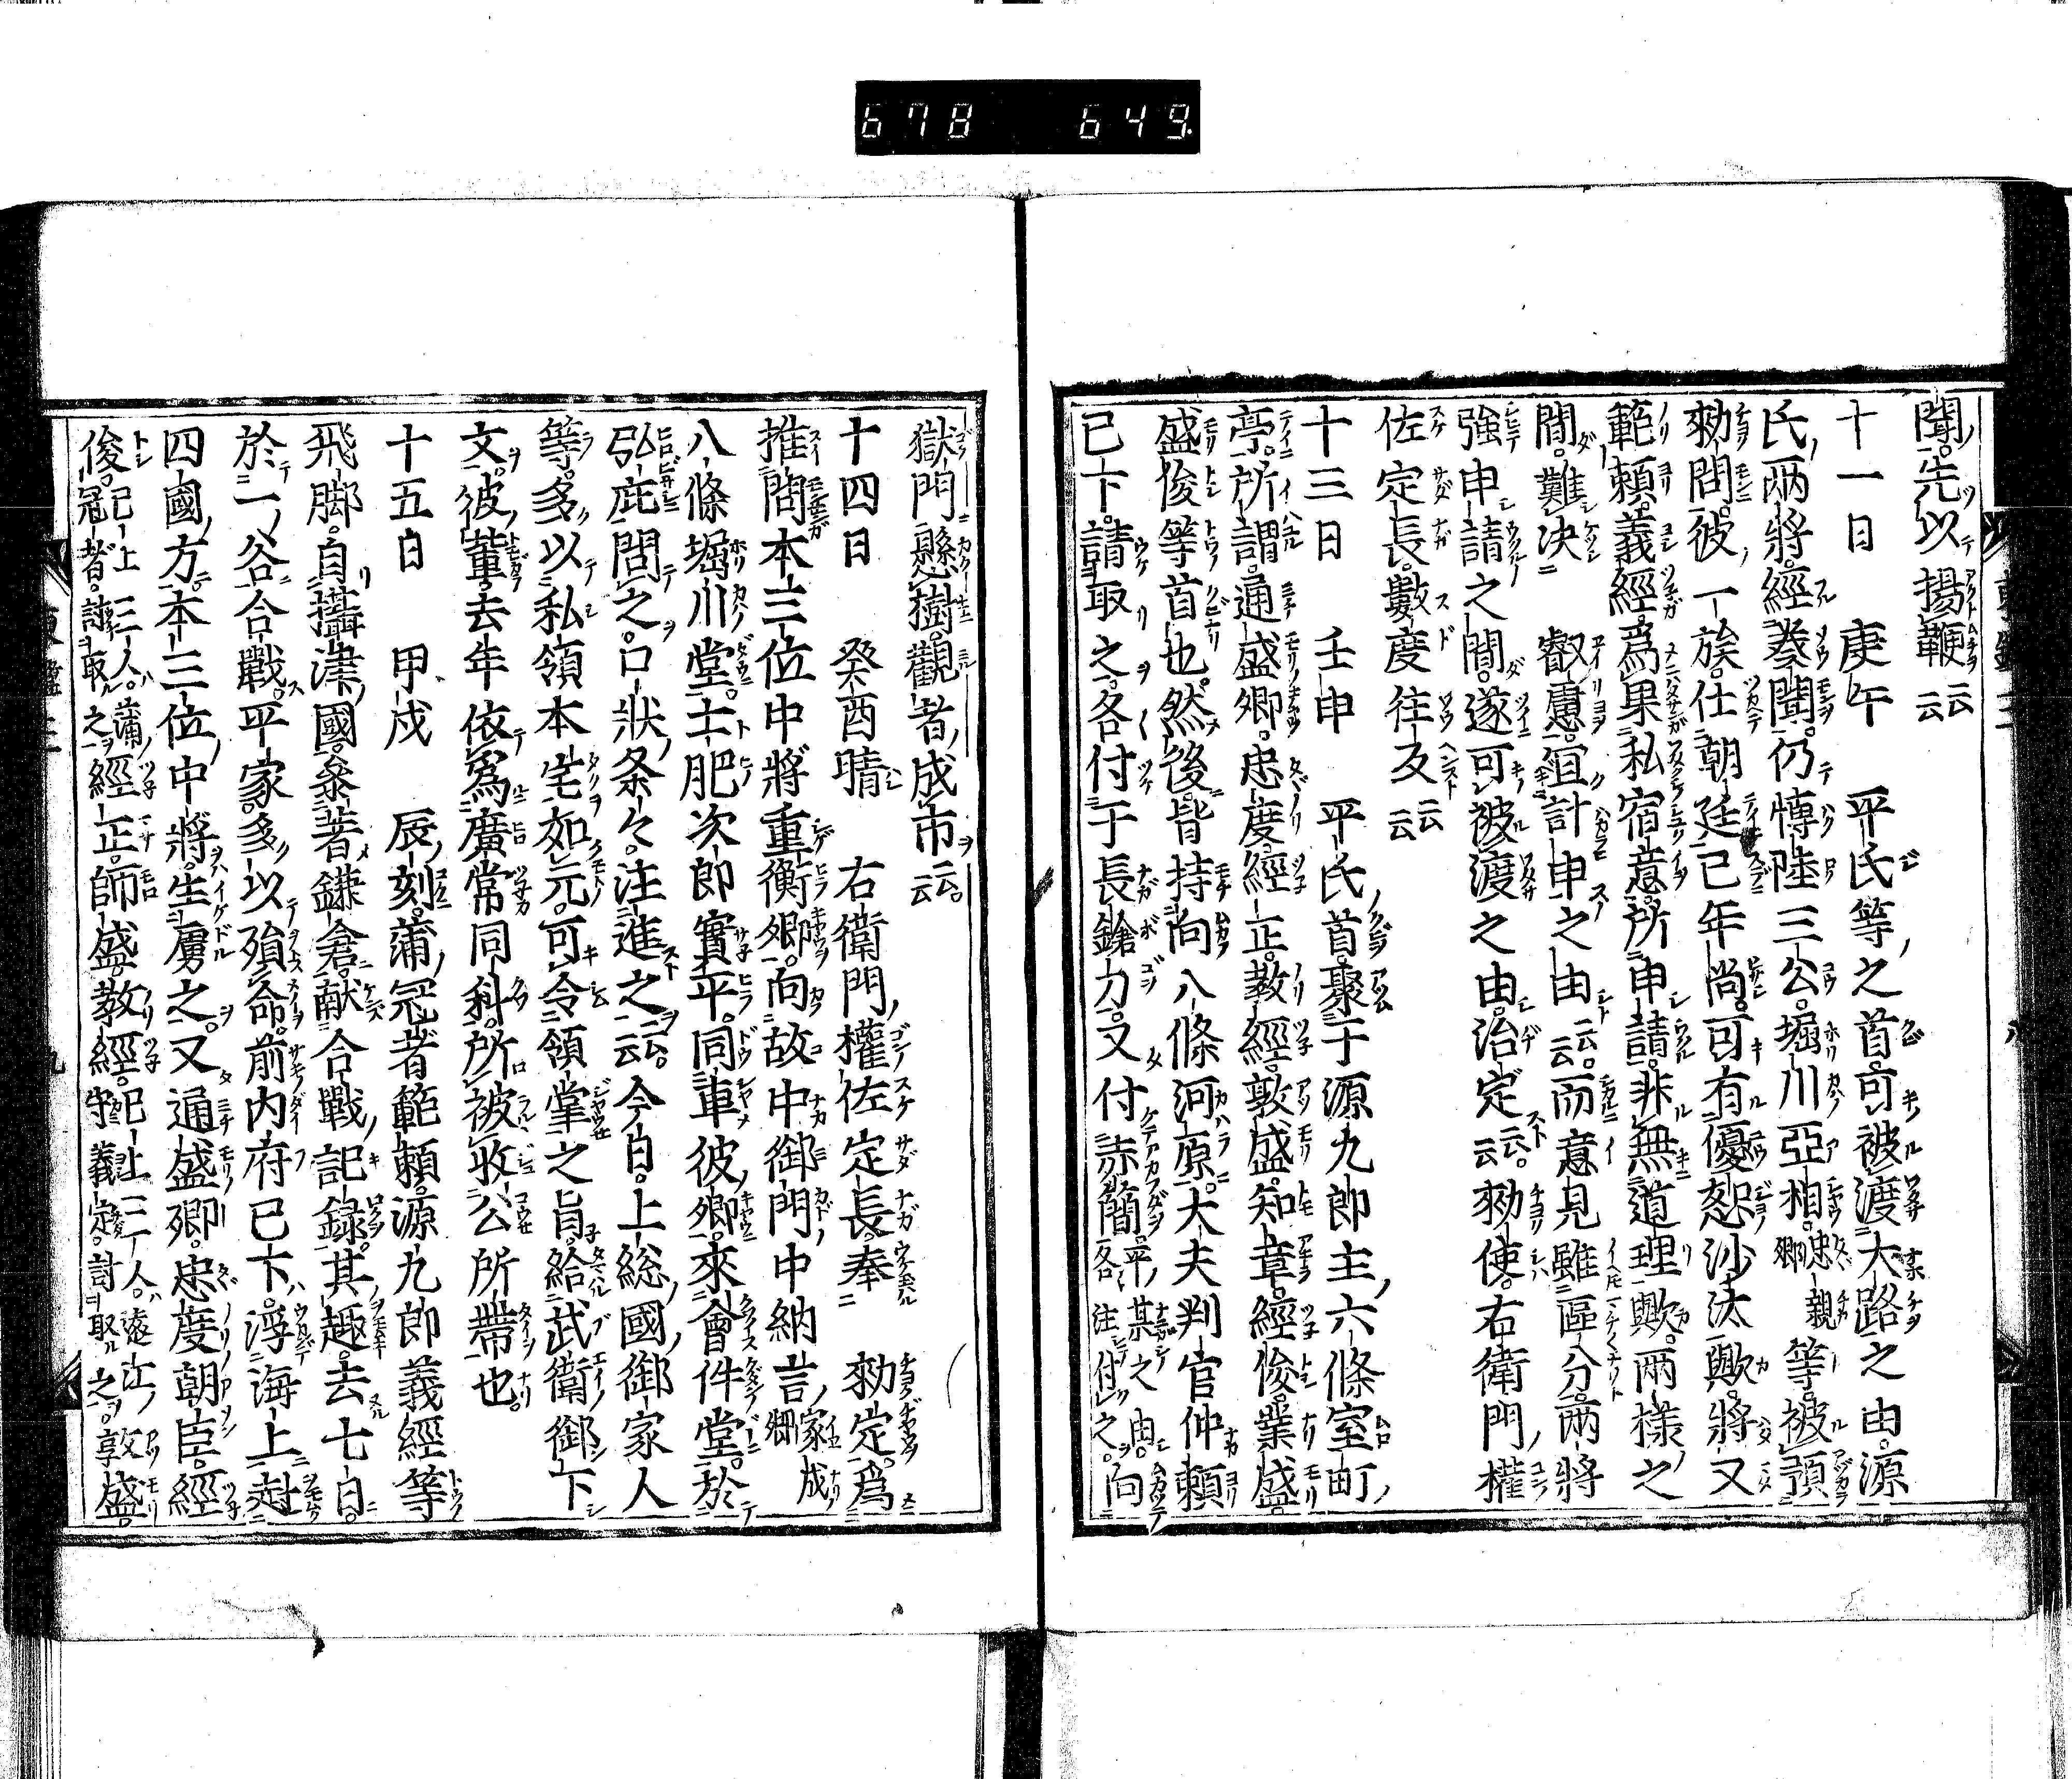 678 649
聞。先以揚鞭云云
十一日　庚午　平氏等之首。可被渡大路之由。源
氏兩將。經奏聞。仍博陸三公。堀川亞相忠親卿等。被預
勅問。彼一族。仕朝廷已年尚。可有優恕沙汰歟。將又
範頼。義經。爲果私宿意。所申請。非無道理歟。兩樣之
間。難决　叡慮。宜計申之由云云。而意見雖區分。兩將
強申請之間。遂可被渡之由。治定云云。勅使。右衛門權
佐定長。數度往反云云
十三日　壬申　平氏首。聚于源九郎主六條室町
亭。所謂。通盛卿。忠度。經正。教經。敦盛。知章。經俊。業盛。
盛俊等首也。然後皆持向八條河原。大夫判官仲頼
已下。請取之。各付于長鎗刀。又付赤簡。平某之由。各注付之。向
獄門懸樹。觀者成市云云。
十四日　癸酉晴　右衛門權佐定長。奉　勅定。爲
推問本三位中將重衡卿。向故中御門中納言家成卿
八條堀川堂。土肥次郎實平。同車彼卿。來會件堂。於
弘庇問之。口状条々。注進之云云。今日。上総國御家人
等。多以私領本宅如元。可令領掌之旨。給武衛御下
文。彼輩去年依爲廣常同科。所被收公所帶也。
十五日　甲戌　辰刻。蒲冠者範頼。源九郎義經等
飛脚。自攝津國。參著鎌倉。献合戰記録。其趣。去七日。
於一谷合戰。平家。多以殞命。前内府已下。浮海上赴
四國方。本三位中將。生虜之。又通盛卿。忠度朝臣。經
俊。已上三人。蒲冠者。討取之經正。師盛。教經。已上三人。遠江守義定。討取之。敦盛。